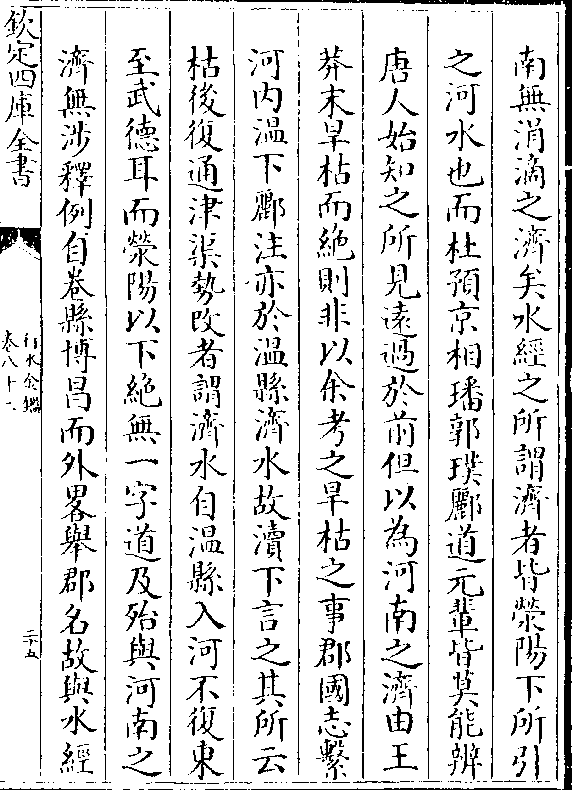 南無涓滴之濟矣水經之所謂濟者皆滎陽下所引
之河水也而杜預京相璠郭璞酈道元輩皆莫能辨
唐人始知之所見遠過於前但以為河南之濟由王
莽末旱枯而絶則非以余考之旱枯之事郡國志繫
河内温下酈注亦於温縣濟水故瀆下言之其所云
枯後復通津渠勢改者謂濟水自温縣入河不復東
至武德耳而滎陽以下絶無一字道及殆與河南之
濟無涉釋例自卷縣博昌而外畧舉郡名故與水經
欽定四庫全書
行水金鑑
卷八十一
二十五